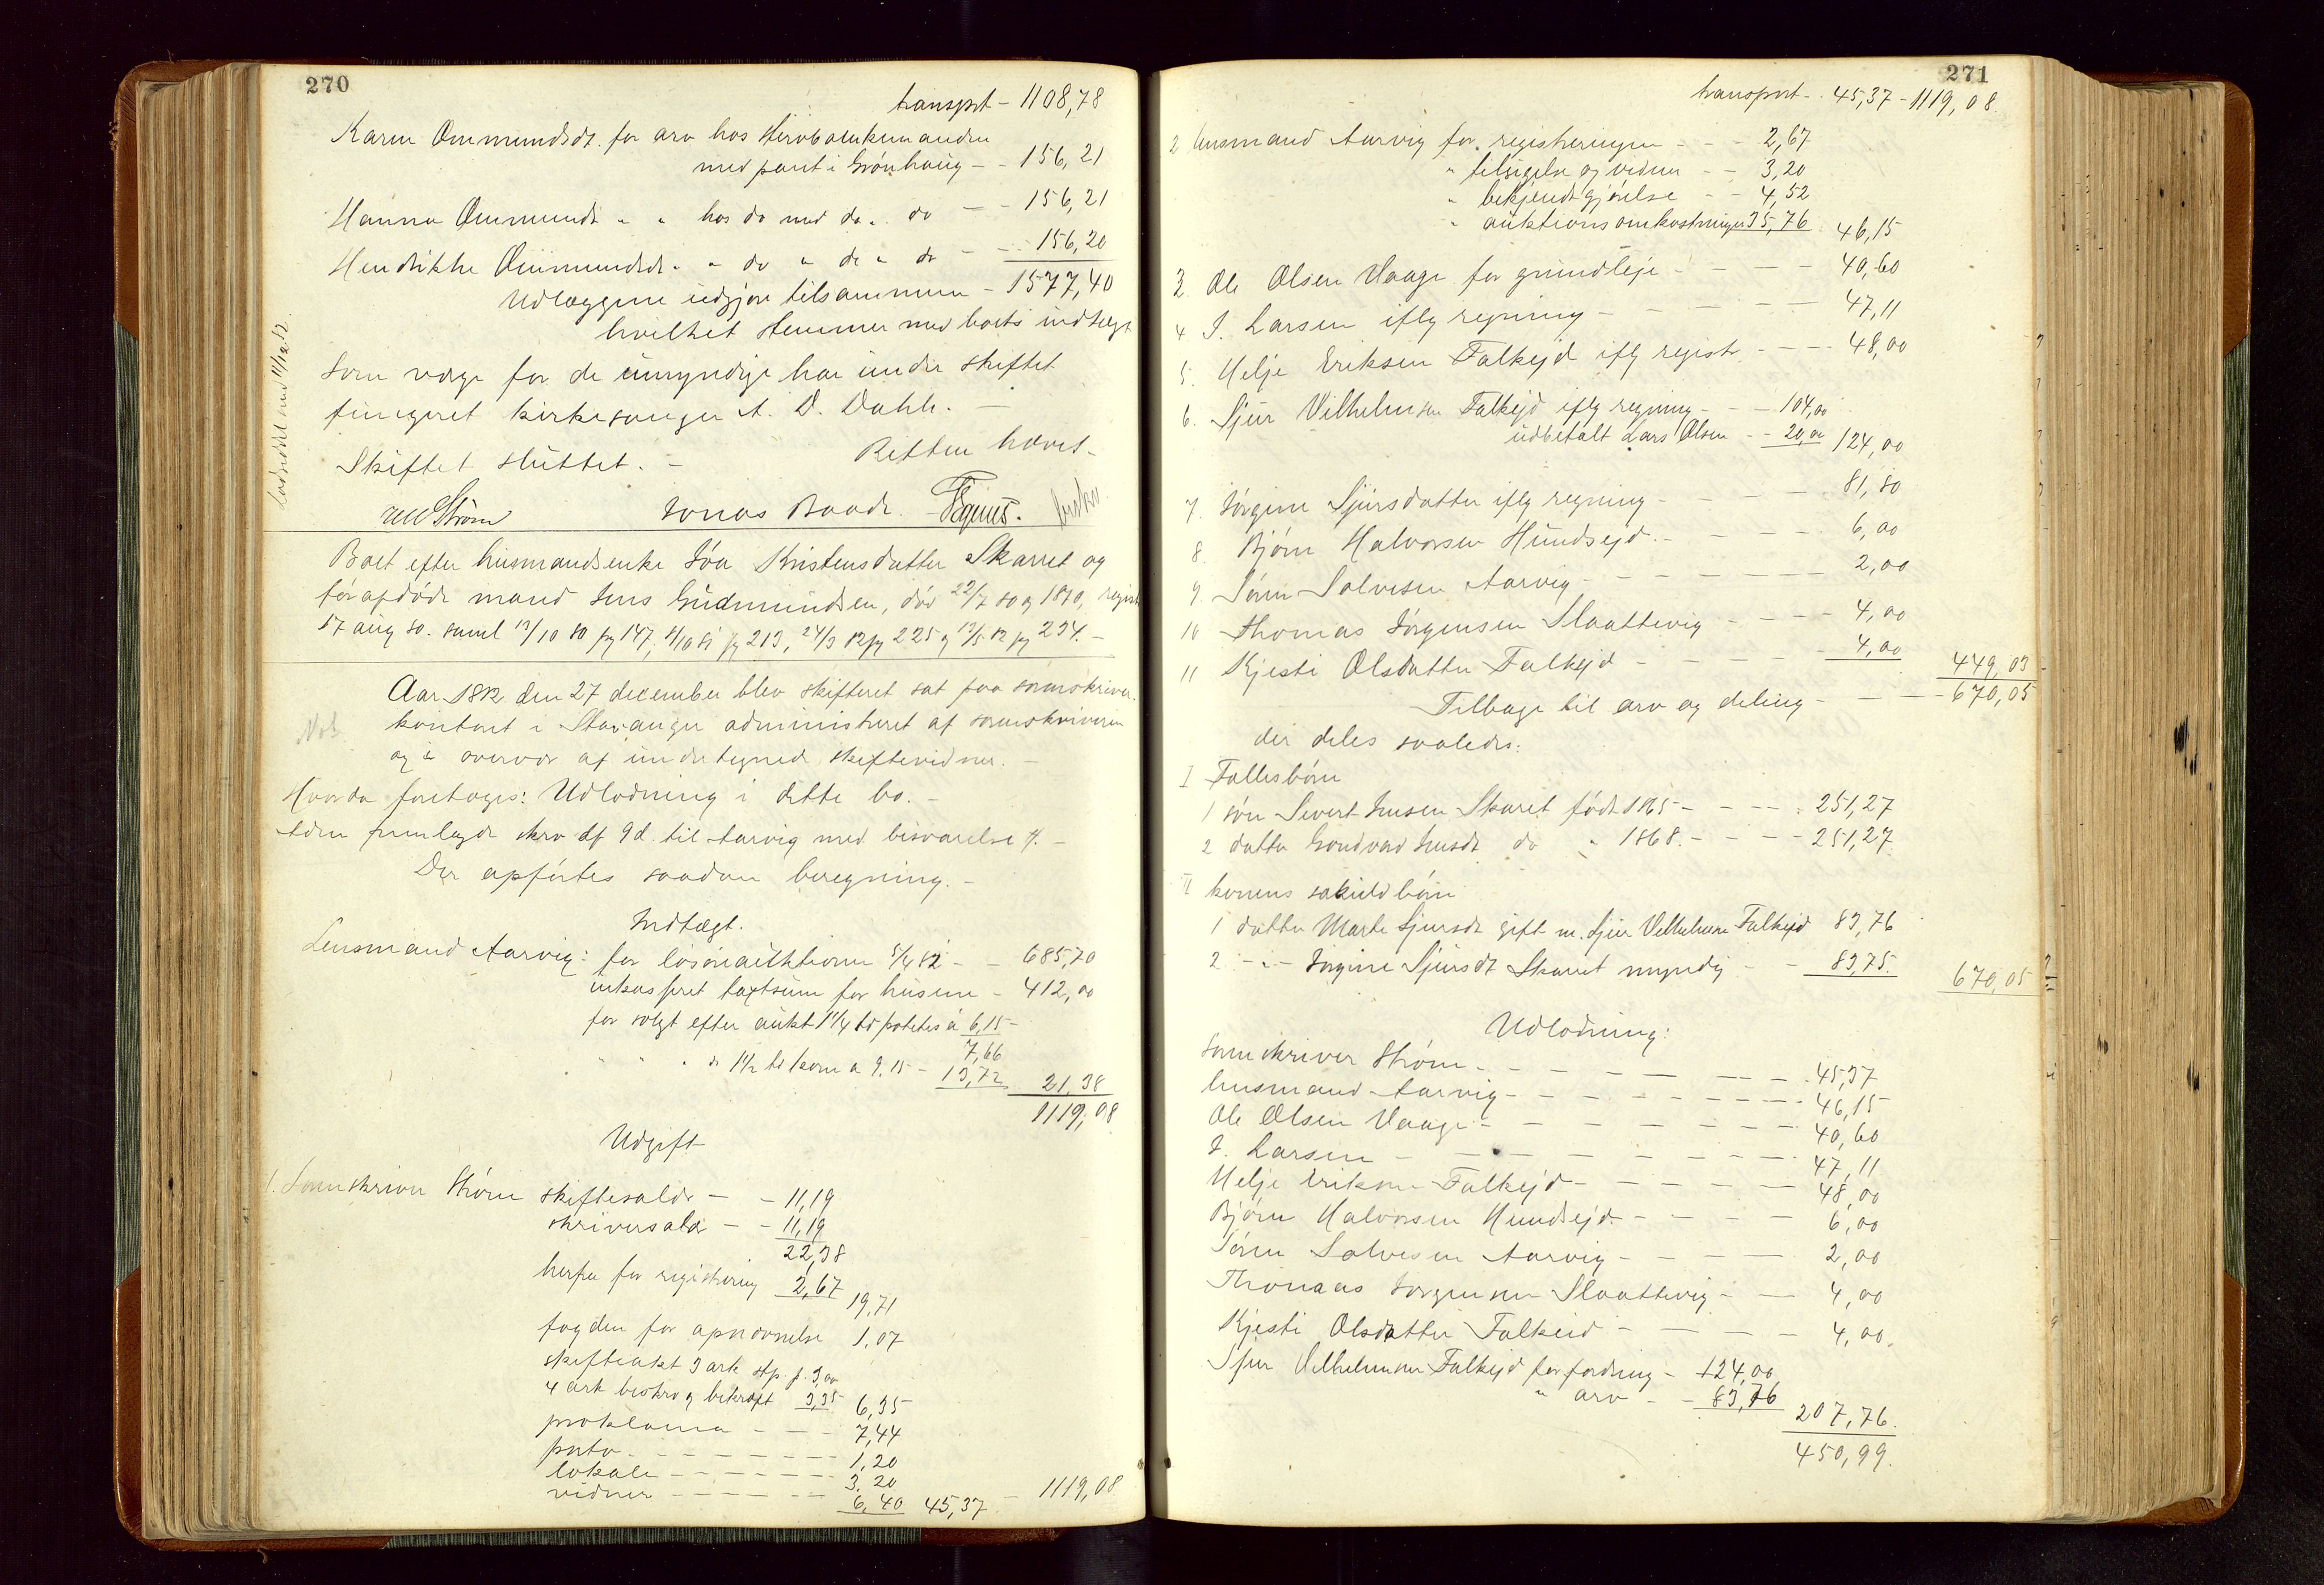 270
transprt - 1108,78
Karen Ommundsdt. for arv hos
med pant i Grönhaug - - 156,21
Hanna Ommunds " " hos do med do " do - - 156,21
Hendrikke Ommundsdt. " " do " do " do - - 156,20
Udlæggene udgjøre tilsammen - 1577,40
hvilket stemmer med boets indtægt
Som værge for de umyndige har under skiftet
fungeret kirkesanger A. D. Dahle. -
Skiftet sluttet. - Retten hævet. -
Strøm Jonas Baade.
Boet efter husmandsenke Kristensdatter Skarret og
førafdöde mand Jens Gudmundsen, död 22/7 80 og 1870, regist
17 aug 80. saml 13/10 80 pg 147, 8/10 81 pg 213, 24/3 82 pg 225 og 13/5 82 pg 234. -
Aar 1882 den 27 december blev skifteret sat paa sorenskriver
kontoret i Stavanger administreret af sorenskriveren
og i overvær af undertegnede skiftevidner. -
Not.
Hvorda foretoges: Udlodning i dette bo. -
fremlagde skrv af 9 d. til Aarvig med besvarelse #. -
Der opførtes saadan beregning. -
Indtægt.
Lensmand Aarvig: for lösöreauktionen 5/4 82 - - 685,70
inkasseret taxtsum for husene - 412,00
for solgt efter aukt 1 1/4 td potetes à 6,15 -
7,66
" " " do 1 1/2 td korn a 9.15 - 13,72 21,38
1119,08
Udgift
1. Sorenskriver Ström skiftesalær - - 11,19
skriversalær - - 11,19
22,38
herfra for registrering 2,67 19,71
fogden for opnævnelse 1,07
skifteakt 3 ark stp. p. 3,00
4 ark beskrv og bekræft 3,35 6,35
proklama - - - 7,44
porto - - - - - - - 1,20
lokale - - - - - - - 3,20
vidner - - - - - - 6,40 45,37 - 1119,08
271
transport - 45,37 - 1119,08.
2 Lensmand Aarvig for registreringen - - - 2,67
" tilsigelse og vidner - - 3,20
" bekjendtgjörelse - - 4,52
" auktionsomkostninger 35,76 46,15
3. Ole Olsen Vaage for grundleje - - - - 40,60
4 J. Larsen iflg regning - - - - 47,11
5. Helje Eriksen Falkejd iflg registr - - - 48,00
6. Sjur Vilhelmsen Falkejd iflg regning - - - 104,00
udbetalt Lars Olsen - - 20,00 124,00
7. Jörgine Sjursdatter iflg regning - - - - 81,80
8. Björn Halvorsen Hundsejd. - - - - - 6,00
9. Sören Salvesen Aarvig - - - - - - 2,00
10 Thomas Jörgensen Slaattevig - - - 4,00
11 Kjesti Olsdatter Falkejd - - - - - 4,00 449,03
Tilbage til arv og deling - - - - 670,05
der deles saaledes:
I Fællesbörn
1 sön Sivert Jensen Skaret födt 1865 - - - - 251,27
2 datter Gondvor Jensdt do " 1868. - - - - 251,27.
II konens sækuldbörn
1 datter Marte Sjursdt gift m. Sjur Velhelmsen Falkejd 83,76
2 - " - Jörgine Sjursdt Skarret myndig - - 83,75. 670,05
Udlodning:
sorenskriver Ström - - - - - - - - 45,37
lensmand Aarvig - - - - - - - - - 46,15
Ole Olsen Vaage - - - - - - - - 40,60
J. Larsen - - - - - - - - 47,11
Helje Eriksen Falkejd - - - - - - 48,00
Björn Halvorsen Hundsejd - - - - 6,00
Sören Salvesen Aarvig - - - - - 2,00
Thomas Jörgensen Slaattevig - - - 4,00
Kjesti Olsdatter Falkeid - - - - - 4,00.
Sjur Velhelmsen Falkejd for fordring - 124,00
" arv - - 83,76 207,76.
450,99.